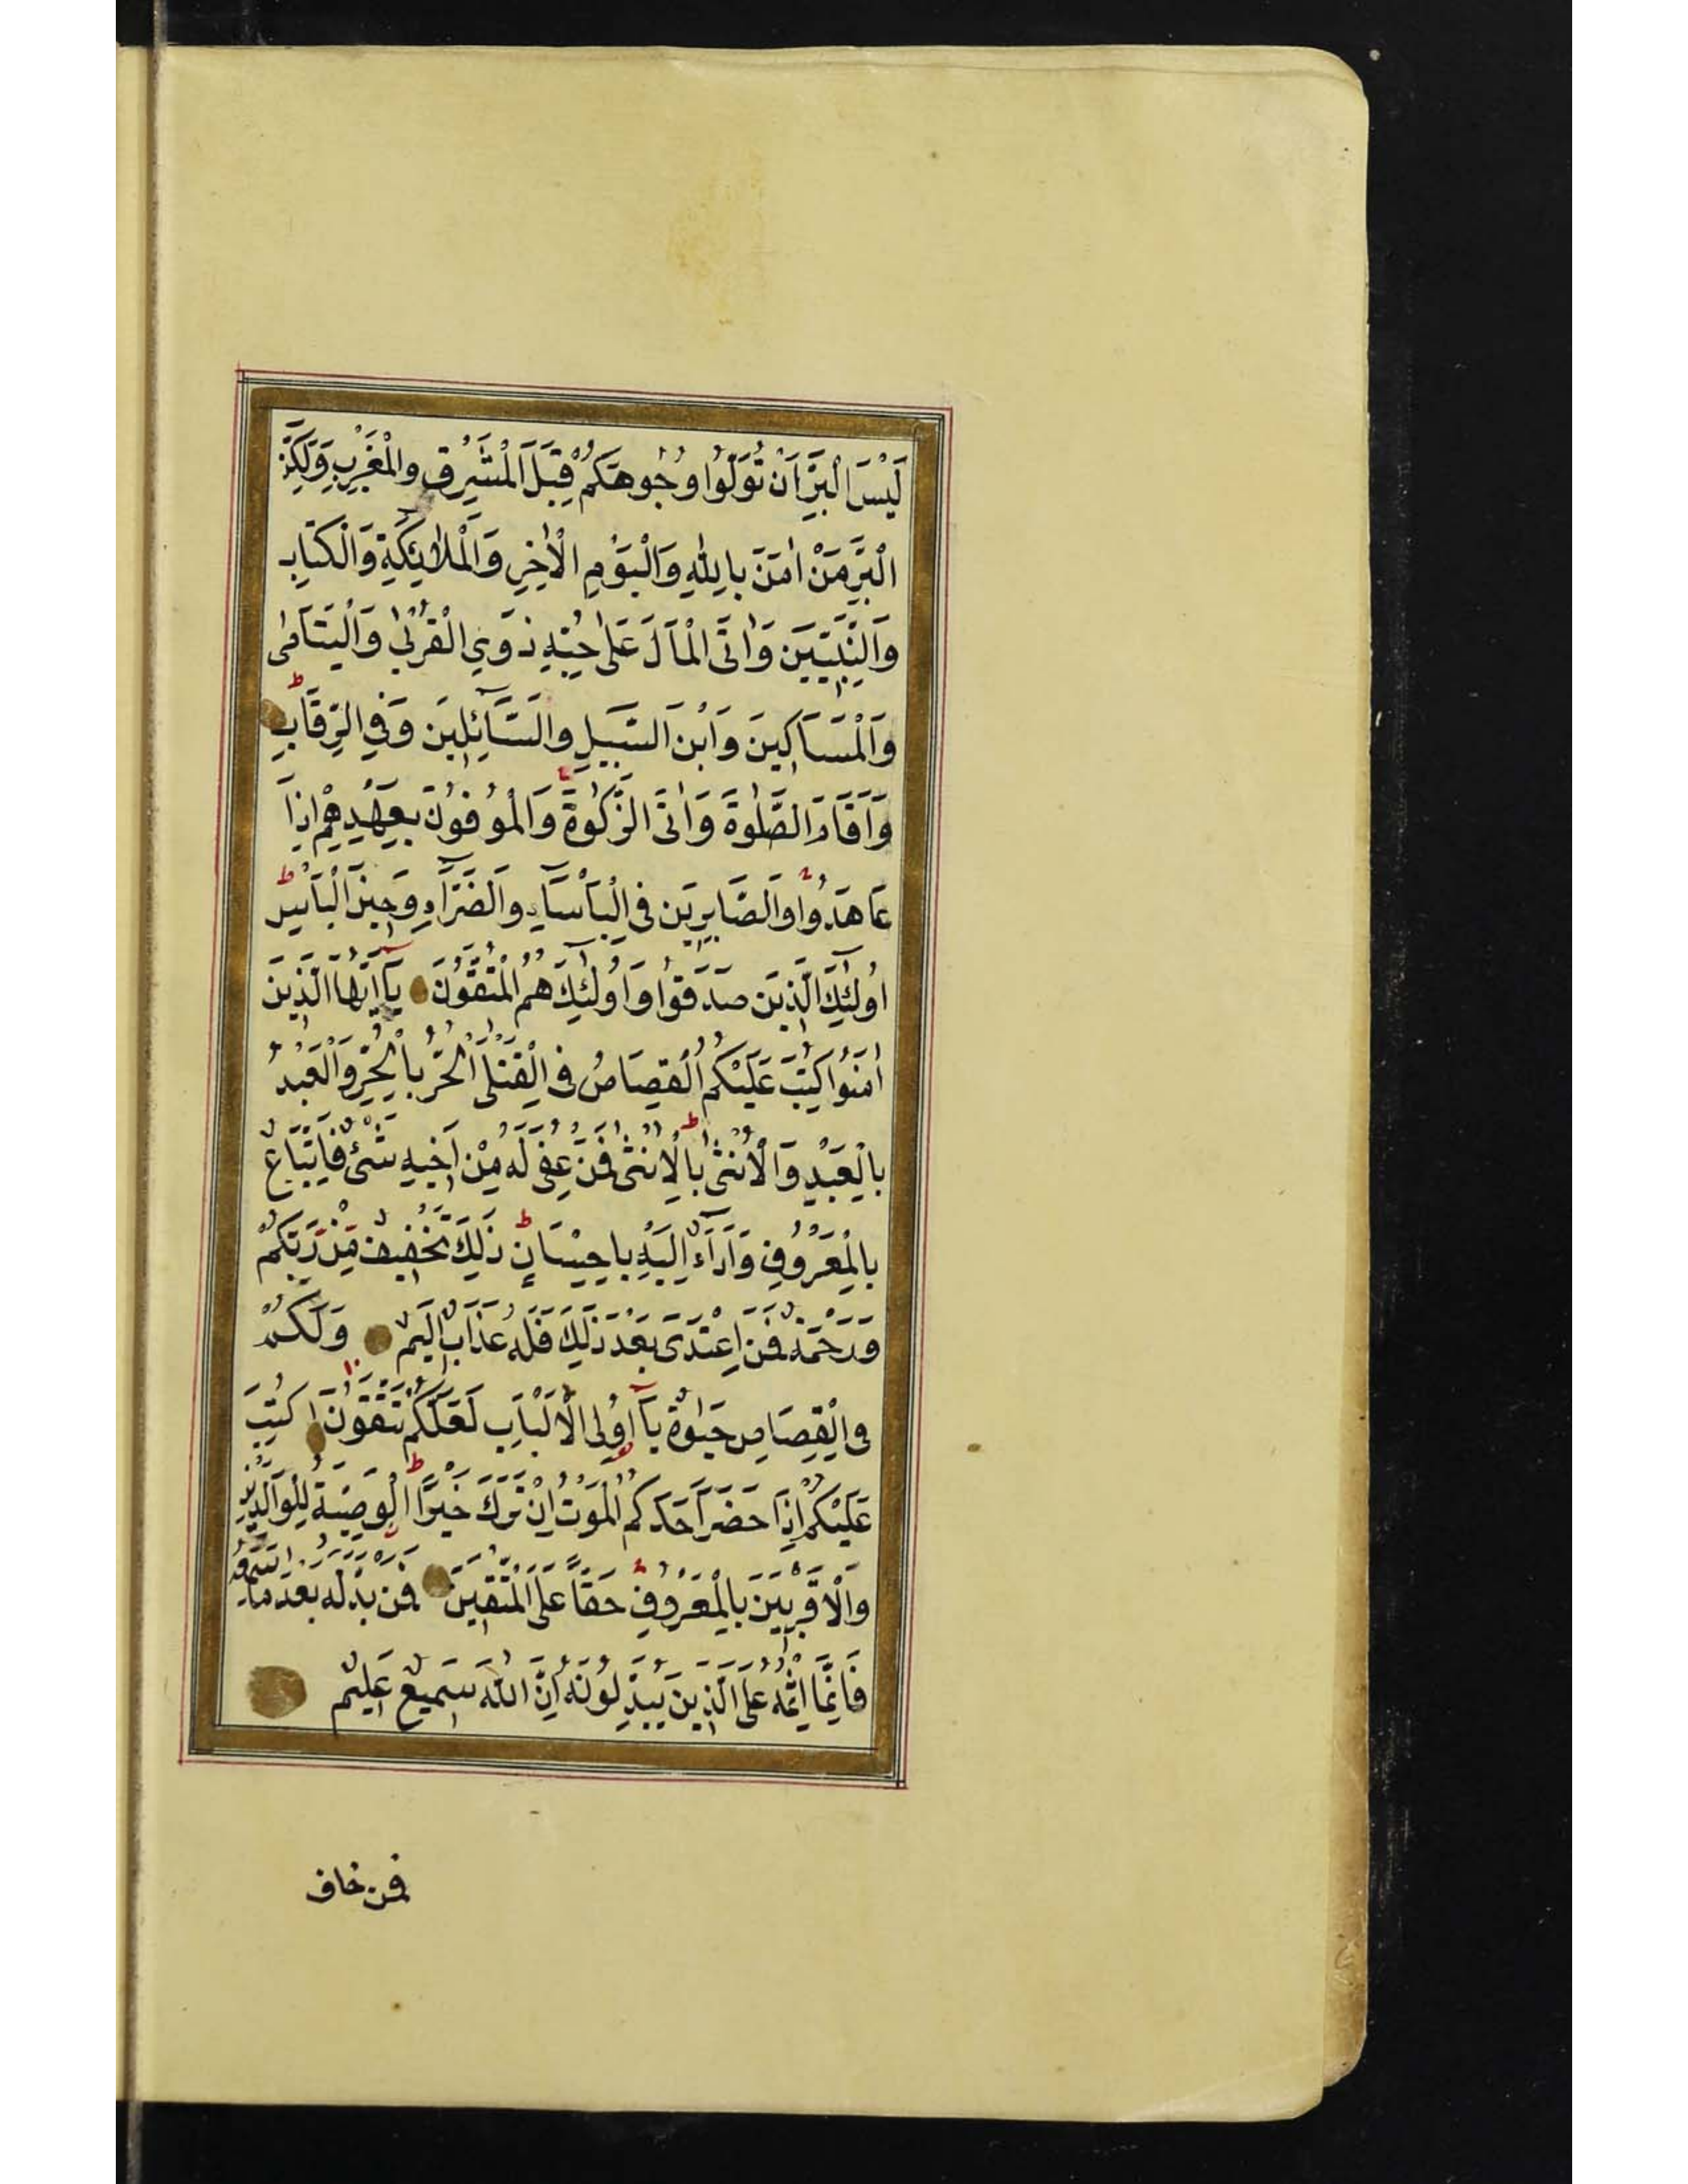 لَيْسَ الْبِرَّ اَنْ تُوَلُّوا وُجُوهَكُمْ قِبَلَ الْمَشْرِقِ وَالْمَغْرِبِ وَلَكِنَّ
الْبِرَّ مَنْ اٰمَنَ بِاللّٰهِ وَالْيَوْمِ الْاٰخِرِ وَالْمَلَائِكَةِ وَالْكِتَابِ
وَالنَّبِيّٖنَ وَاٰتَى الْمَالَ عَلٰى حُبِّهٖ ذَوِي الْقُرْبٰى وَالْيَتَامٰى
وَالْمَسَاكِينَ وَابْنَ السَّبِيلِ وَالسَّآئِلِينَ وَفِي الرِّقَابِ ط
وَاَقَامَ الصَّلٰوةَ وَاٰتَى الزَّكٰوةَ وَالْمُوفُونَ بِعَهْدِهِمْ اِذَا
عَاهَدُوا وَالصَّابِرِينَ فِي الْبَأْسَآءِ وَالضَّرَّآءِ وَحِينَ الْبَأْسِ ط
اُولٰئِكَ الَّذِينَ صَدَقُوا وَاُولٰئِكَ هُمُ الْمُتَّقُونَ يَآ اَيُّهَا الَّذِينَ
اٰمَنُوا كُتِبَ عَلَيْكُمُ الْقِصَاصُ فِي الْقَتْلٰى اَلْحُرُّ بِالْحُرِّ وَالْعَبْدُ
بِالْعَبْدِ وَالْاُنْثٰى بِالْاُنْثٰى ط فَمَنْ عُفِيَ لَهُ مِنْ اَخِيهِ شَيْءٌ فَاتِّبَاعٌ
بِالْمَعْرُوفِ وَاَدَآءٌ اِلَيْهِ بِاِحْسَانٍ ط ذٰلِكَ تَخْفِيفٌ مِنْ رَبِّكُمْ
وَرَحْمَةٌ فَمَنِ اعْتَدَى بَعْدَ ذٰلِكَ فَلَهُ عَذَابٌ اَلِيمٌ وَلَكُمْ
فِي الْقِصَاصِ حَيٰوةٌ يَآ اُولِي الْاَلْبَابِ لَعَلَّكُمْ تَتَّقُونَ كُتِبَ
عَلَيْكُمْ اِذَا حَضَرَ اَحَدَكُمُ الْمَوْتُ اِنْ تَرَكَ خَيْرًا ط الْوَصِيَّةُ لِلْوَالِدَيْنِ
وَالْاَقْرَبِينَ بِالْمَعْرُوفِ حَقًّا عَلَى الْمُتَّقِينَ فَمَنْ بَدَّلَهُ بَعْدَ مَا سَمِعَهُ
فَاِنَّمَا اِثْمُهُ عَلَى الَّذِينَ يُبَدِّلُونَهُ اِنَّ اللّٰهَ سَمِيعٌ عَلِيمٌ
فمن خاف